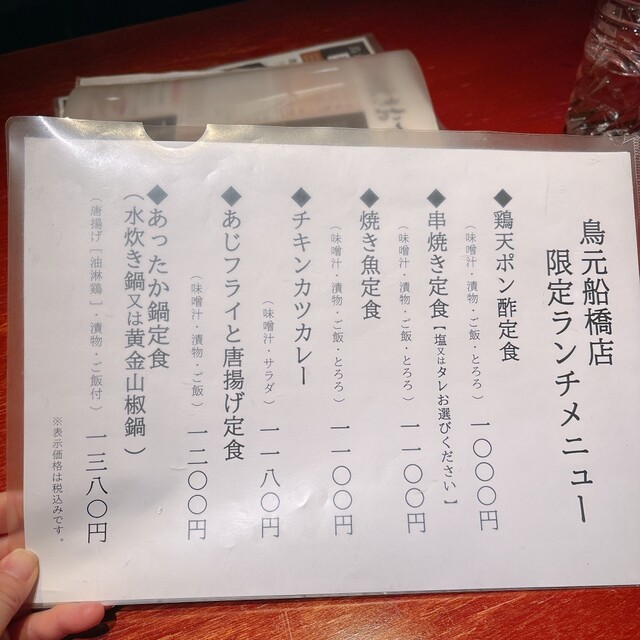 鳥元船橋店
限定ランチメニュー
◆鶏天ポン酢定食
（味噌汁・漬物・ご飯・とろろ）一〇〇〇円
◆串焼き定食【塩又はタレお選びください】
（味噌汁・漬物・ご飯・とろろ）一一〇〇円
◆焼き魚定食
（味噌汁・漬物・ご飯・とろろ）一一〇〇円
◆チキンカツカレー
（味噌汁・サラダ）一一八〇円
◆あじフライと唐揚げ定食
（味噌汁・漬物・ご飯）一二〇〇円
◆あったか鍋定食
（水炊き鍋又は黄金山椒鍋）
（唐揚げ［油淋鶏］・漬物・ご飯付）一三八〇円
※表示価格は税込みです。